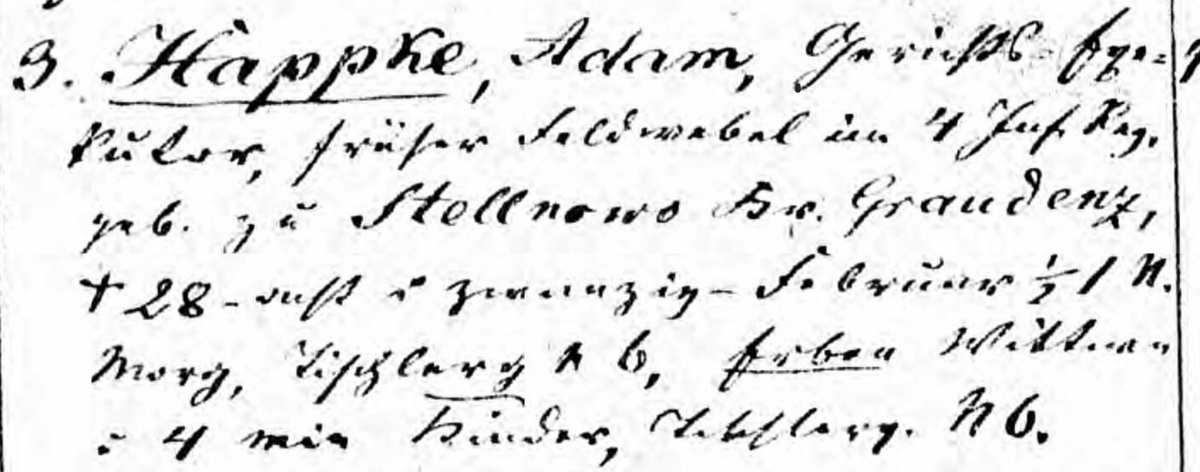 3. Häppke, Adam, Gerichts-Exe-
kutor, früher Feldwebel im 4 Inf. Reg.
geb. zu Stellnowo Kr. Graudenz,
† 28 - acht u zwanzig - Februar ½ 1 N.
Morg, Tischlerg N 6, Erben Wittwe
u 4 min Kinder, Tischlerg. N 6.